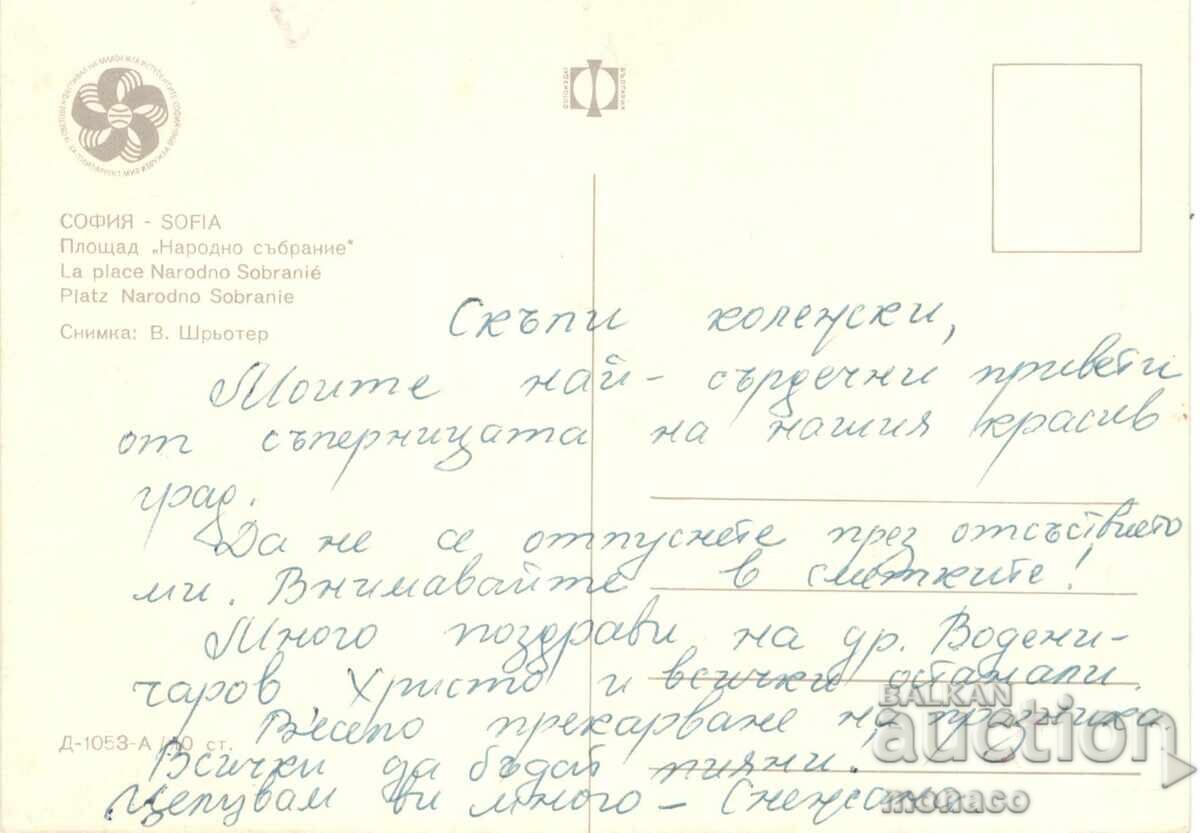 СОФИЯ - SOFIA
Площад „Народно събрание"
La place Narodno Sobranié
Platz Narodno Sobranie
Снимка: В. Шрьотер
Скъпи колежски,
Моите най-сърдечни привети
от съперницата на нашия красив
град.
Да не се отпуснете през отсъствието
ми. Внимавайте в сметките!
Много поздрави на др. Водени-
чаров Христо и всички останали.
Весело прекарване на празника.
Всички да бъдат пияни!
Целувам ви много - Снежана
Д-1053-А / 10 ст.
BALKAN
auction
monaco